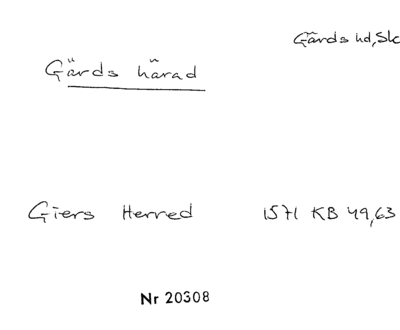 Gärds hd, Sk
Gärds härad
Giers Herred 1571 KB 49,63
Nr 20308